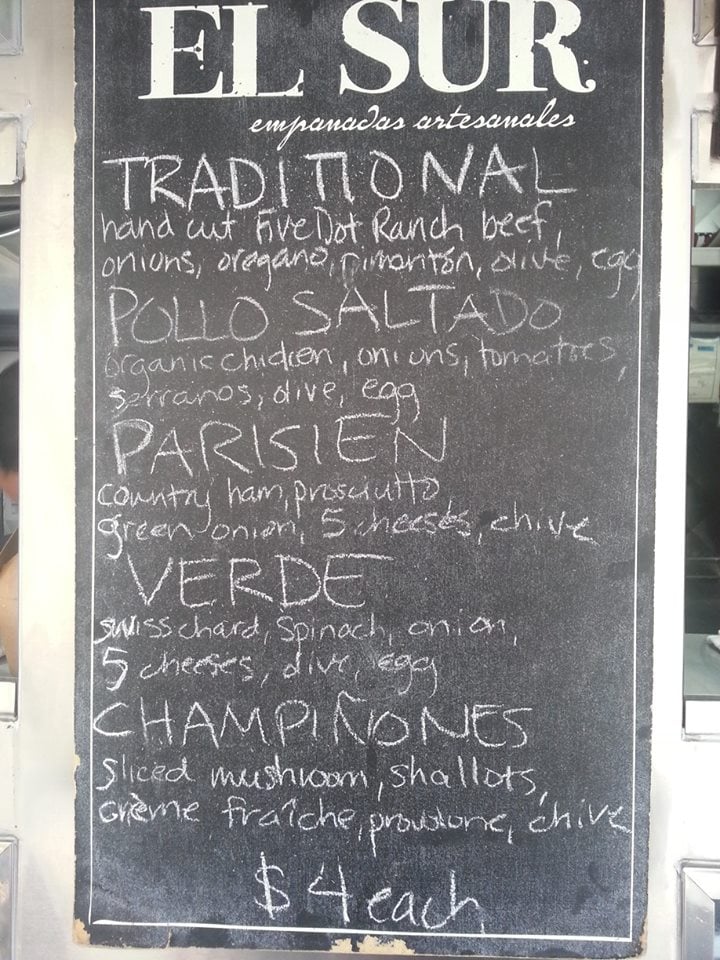 EL SUR
empanadas artesanales
TRADITIONAL
hand cut Five Dot Ranch beef,
onions, oregano, pimentón, olive, egg
POLLO SALTADO
organic chicken, onions, tomatoes,
serranos, olive, egg
PARISIEN
country ham, prosciutto
green onion, 5 cheeses, chive
VERDE
swiss chard, spinach, onion,
5 cheeses, olive, egg
CHAMPIÑONES
sliced mushroom, shallots,
crème fraîche, provolone, chive
$4 each